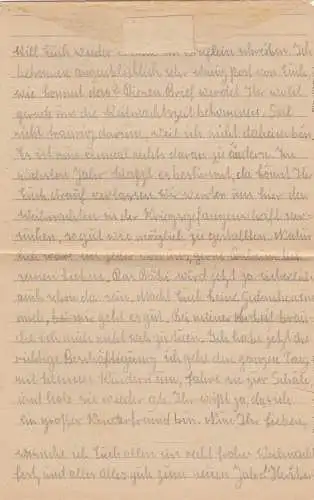 Will Euch wieder einmal ein schreiben. Ich
bekomme augenblicklich sehr wenig post von Euch,
wie kommt das? Diesen Brief werdet Ihr wohl
gerade um die Weihnachtszeit bekommen. Seit
nicht traurig darum, weil ich nicht daheim bin.
Es ist nun einmal nichts daran zu ändern. Im
nächsten Jahr klappt es bestimmt, da könnt Ihr
Euch drauf verlassen. Wir werden uns hier das
Weihnachten in der Kriegsgefangenschaft ver-
suchen, so gut wie möglich zu gestallten. Natür-
lich wäre ein jeder von uns, gern
seinen lieben. Der wird jetzt ja sicherlich
auch schon da sein. Macht Euch keine Gedanken
auch, bei mir geht es gut. Bei meiner Arbeit brau-
che ich mich nicht weh zu tuen. Ich habe jetzt die
richtige Beschäftigung, ich gehe den ganzen Tag
mit kleinen Kindern um, fahre sie zur Schule,
und hole sie wieder ab. Ihr wißt ja, das ich
ein großer Kinderfreund bin. Nun Ihr Lieben,
wünsche ich Euch allen ein recht frohes Weihnachts-
fest, und alles Gute zum neuen Jahr.